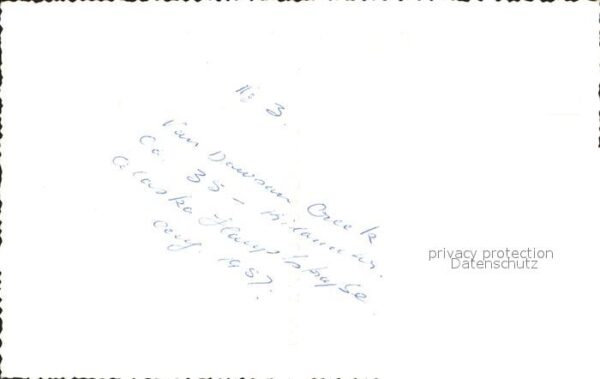 No 3.
Van Dawson Creek
Ca. 35 -
Alaska
Aug. 1957.
privacy protection
Datenschutz